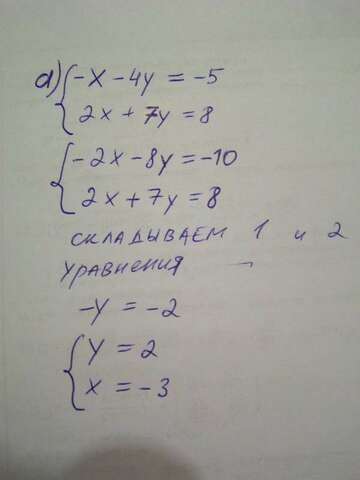 а) -x - 4y = -5
2x + 7y = 8
-2x - 8y = -10
2x + 7y = 8
складываем 1 и 2
уравнения
-y = -2
y = 2
x = -3